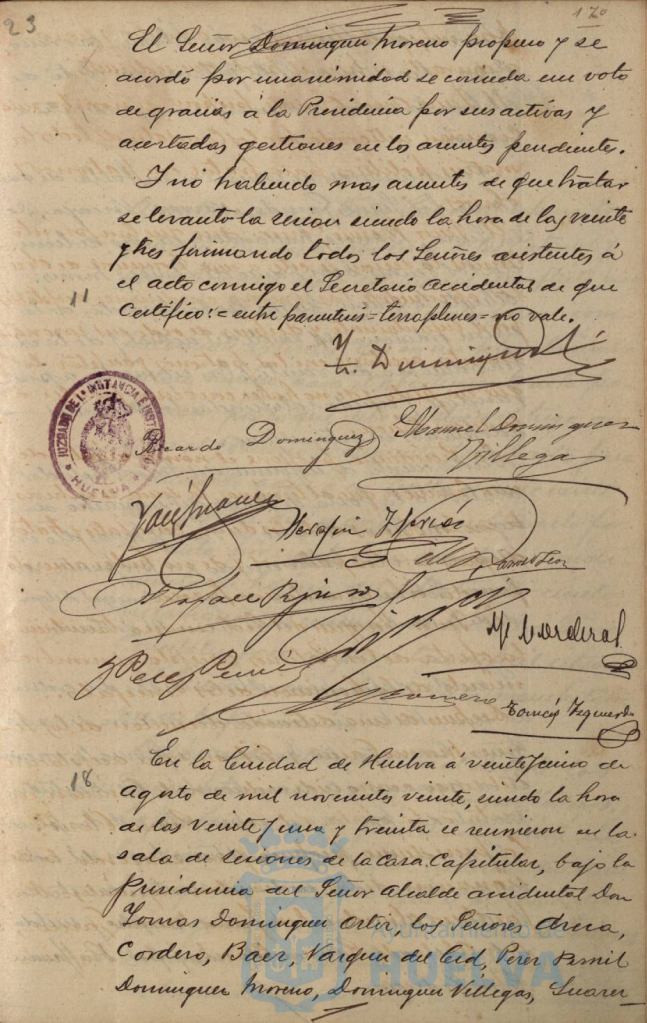 23
170
El Señor Dominguez Moreno propuso y se
acordó por unanimidad se conceda un voto
de gracias á la Presidencia por sus activas y
acertadas gestiones en los asuntos pendientes.
Y nó habiendo mas asuntos de que tratar
se levanto la sesion siendo la hora de las veinte
y tres firmando todos los Señores asistentes á
el acto conmigo el Secretario accidental de que
11
Certifico: = entre parentesis = terraplenes = no vale.
T. Dominguez
JUZGADO DE 1ª INSTANCIA E INSTRUCCION
HUELVA
Ricardo Dominguez
Manuel Dominguez
Villegas
José Suarez
Serafin
M Cordero
Perez
Romero
Tomás Izquierdo
En la Ciudad de Huelva á veintiunio de
18
Agosto de mil novecientos veinte, siendo la hora
de las veinte y una y treinta se reunieron en la
sala de sesiones de la casa Capitular, bajo la
Presidencia del Señor Alcalde accidental Don
Tomas Dominguez Ortiz, los Señores
Cordero, Baez, Vazquez del Cid, Perez
HUELVA
Dominguez Moreno, Dominguez Villegas, Suarez